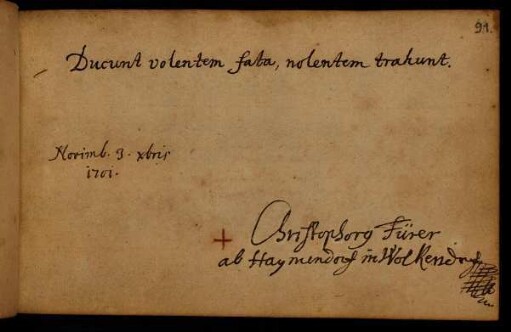 91.
Ducunt volentem fata, nolentem trahunt.
Norimb. 3. xbris
1701.
Christophorg Fürer
ab Haymendorf in Wolkendorf